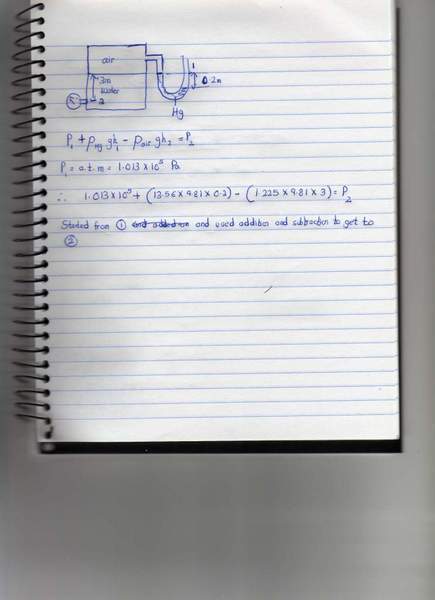 air
1
3m
0.2m
water
2
Hg
P₁ + ρHg gh₁ - ρair gh₂ = P₂
P₁ = a.t.m = 1.013 x 10⁵ Pa
∴ 1.013 x 10⁵ + (13.56 x 9.81 x 0.2) - (1.225 x 9.81 x 3) = P₂
Started from ① and used addition and subtraction to get to
②